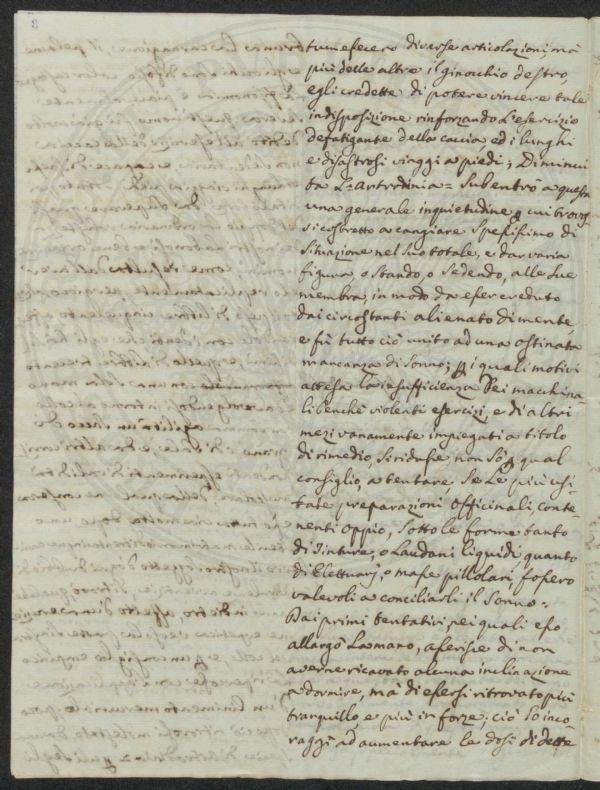 8
tumefecero diverse articolazioni, mà
più delle altre il ginocchio destro,
egli credette di potere vincere tale
indisposizione rinforzando l'esercizio
defatigante della caccia, ed i lunghi
e disastrosi viaggi a piedi; Diminui
ta L'Artrodinia = Subentrò a questa
una generale inquietudine, cui
si costretto a cangiare spessissimo di
situazione nel suo totale, e dar varia
figura, o stando, o sedendo, alle sue
membra, in modo da esser creduto
dai circostanti alienato di mente,
e fù tutto ciò unito ad una ostinata
mancanza di sonno; i quali motivi
attesa la insufficienza dei macchina
li benchè violenti esercizi, e di altri
mezi vanamente impiegati a titolo
di rimedio, si ridusse non sò qual
consiglio, a tentare se le più usi-
tate preparazioni officinali, conte-
nenti oppio, sotto le forme tanto
di Tinture, o Laudani liquidi quanto
di Elettuarj, o masse pillolari fossero
valevoli a conciliarli il sonno =
Dai primi tentativi, pei quali esso
allargò la mano, asserisce di non
averne ricavato alcuna inclinazione
a dormire, mà di essersi ritrovato più
tranquillo, e più in forze; ciò lo inco-
raggì ad aumentare le dosi di dette